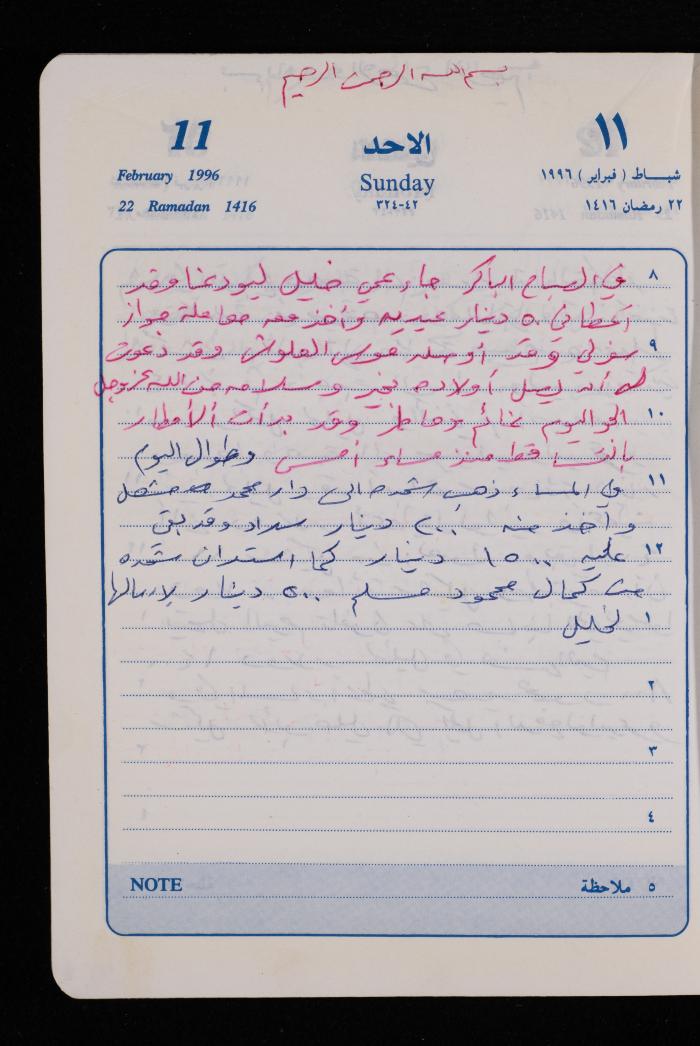 بسم الله الرحمن الرحيم
11 الاحد ١١
February 1996 Sunday شباط ( فبراير ) ١٩٩٦
22 Ramadan 1416 ٣٢٤-٤٢ ٢٢ رمضان ١٤١٦
٨ في الصباح الباكر جاء عمي خليل ليودعنا وقد
أعطاني ٥٠ دينار عيديه وأخذ معه معاملة جواز
٩ سفري وقد أوصله موسى العلوش وقد دعوت
له أن يصل أولاده بخير وسلامه من الله عز وجل
١٠ الجو اليوم غائم وماطر وقد بدأت الأمطار
بالتساقط منذ مساء أمس وطوال اليوم
١١ في المساء ذهب شحده الى دار محمد مشعل
وأخذ منه ٢٠٠ دينار سداد وقد بقي
١٢ عليه ١٥٠٠ دينار كما استدان شحده
من كمال محمود مسلم ٥٠٠ دينار لإرسالها
١ لخليل
٢
٣
٤
NOTE ٥ ملاحظة